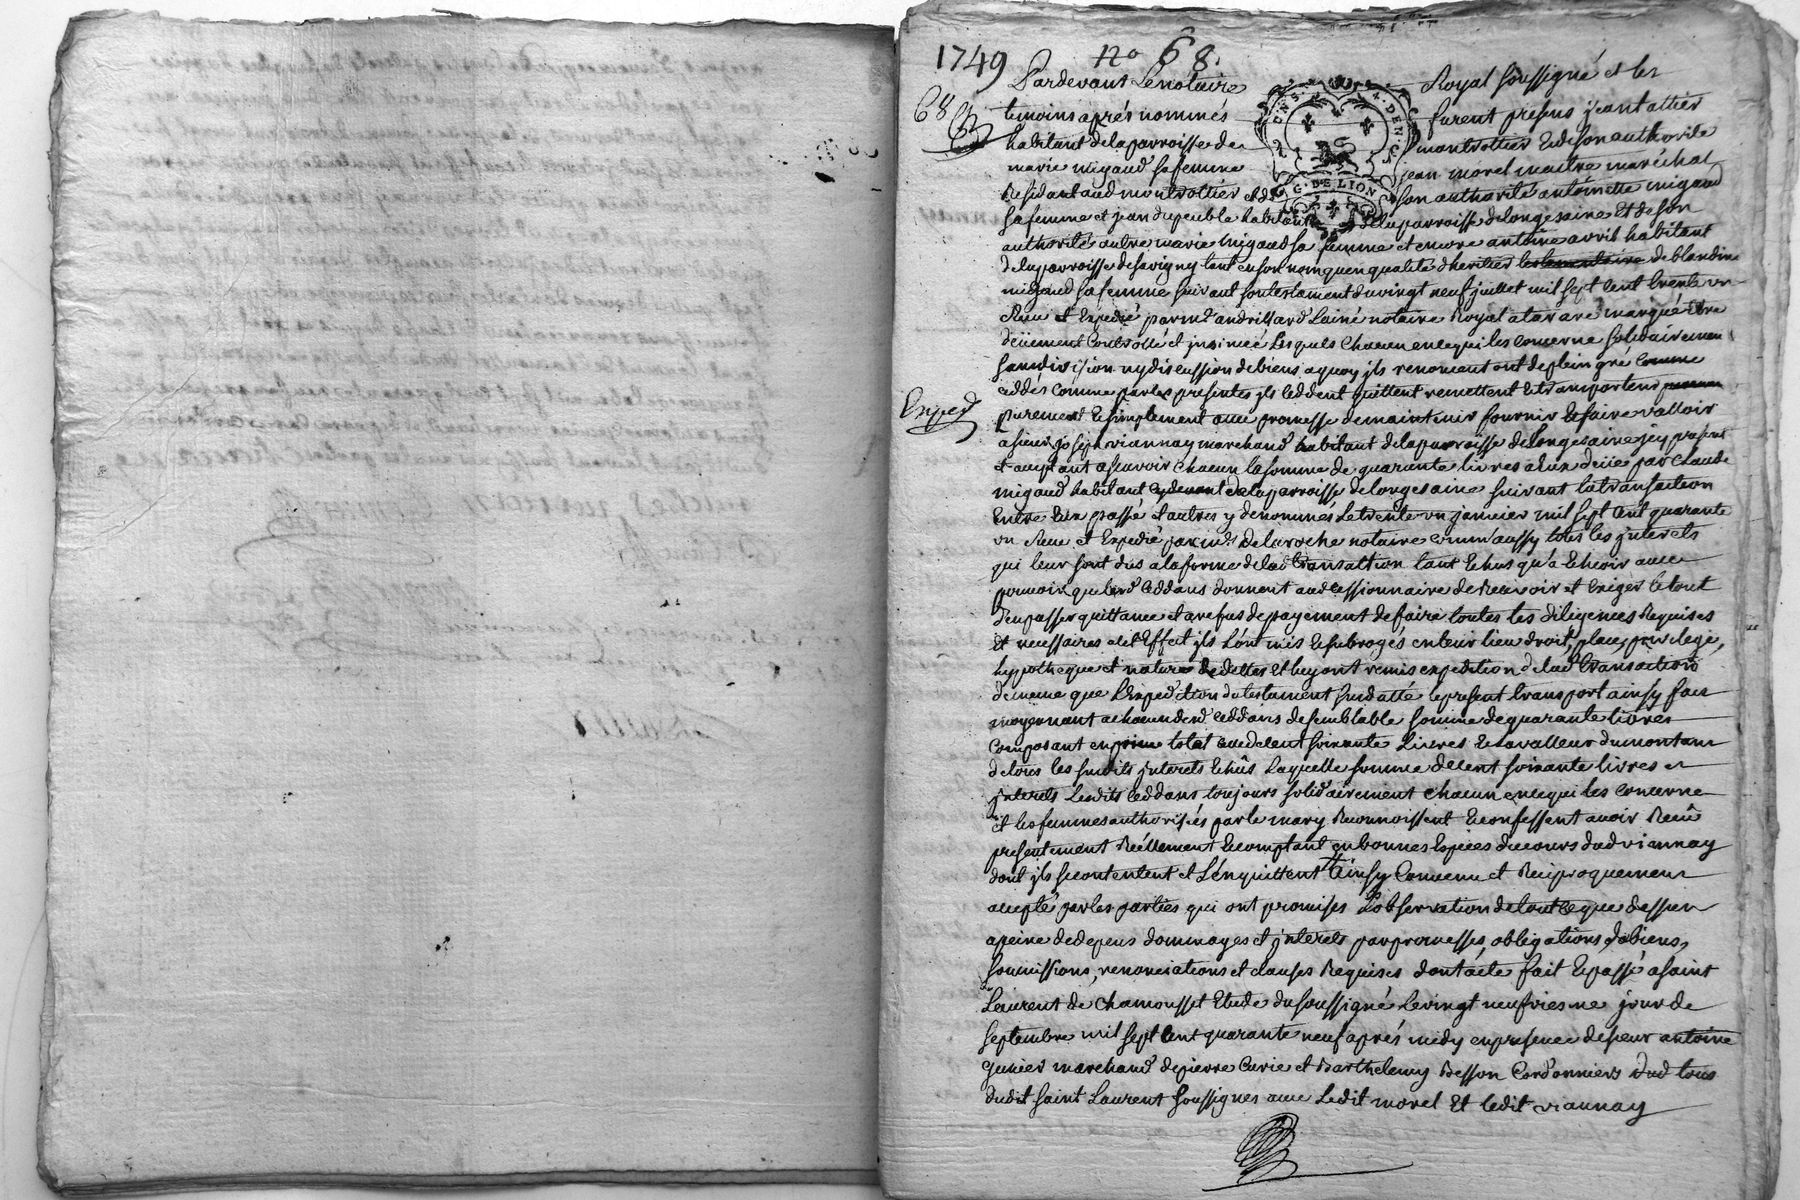 1749 no 68.
68
Pardevant Le notaire Royal soussigné et les
temoins aprés nommés furent presens jean tattier
habitant de la parroisse de montrottier et de son authorité
marie migaud sa femme jean morel maitre maréchal
Residant aud montrottier et de son authorité antoinette migaud
sa femme et jean dupeuble habitant de la parroisse de longesaine Et de son
authorité autre marie migaud sa femme et encore antoine avril habitant
de la parroisse de savigny tant en son nom qu'en qualité d'heritier de blandine
migaud sa femme suivant son testament du vingt neuf juillet mil sept cent trente un
Receu et Expedié par me andrillard L'ainé notaire Royal a tarare marqué Etre
deüement Controllé et jnsinué Lesquels chacun en ce qui les concerne solidairement
sans division ny discussion de biens a quoy jls renoncent ont de plein gré
ceddés comme par les presentes jls ceddent quittent remettent et transportent
Exped
purement et simplement avec promesse de maintenir fournir et faire valloir
a sieur joseph viannay marchand habitant de la parroisse de Longesaine jcy present
et acceptant a sçavoir chacun la somme de quarante livres a Eux deüe par claude
migaud habitant de la parroisse de longesaine suivant la transaction
Entre Eux passé et autres y denommés Le trente un janvier mil sept cent quarante
un Receu et Expedié par me delaroche notaire comm'aussy tous les jnterets
qui leur sont dus a la forme de lad transaction tant Echus qu'a Echeoir avec
pouvoir que lesd ceddans donnent aud cessionnaire de Recevoir et Exiger le tout
d'en passer quittance et a refus de payement de faire toutes les diligences Requises
Et necessaires a cet Effet jls L'ont mis et subrogés en leur lieu droit, place, privilege,
hypotheque et nature de dettes et luy ont remis expedition de lad transaction
de meme que L'Expedition du testament susdatté le present transport ainsy fait
moyennant a chacun desd ceddans de semblable somme de quarante livres
composant en total celle de cent soixante Livres et la valleur du montant
de tous les susdits jnterets Echûs Laquelle somme de cent soixante livres et
jnterets Lesdits Ceddans toujours solidairement chacun en ce qui les concerne
et les femmes authorisées par le mary Reconnoissent et confessent avoir Receû
presentement Réellement et comptant en bonnes Espèces du cours dud viannay
dont jls se contentent et L'en quittent Ainsy Convenu et Reciproquement
accepté par les parties qui ont promises L'observation de tout ce que dessus
a peine de depens dommages et jnterets par promesses, obligations, de biens,
soumissions, renonciations et clauses Requises dont acte fait et passé a saint
Laurent de chamousset Etude du soussigné Le vingt neufviesme jour de
septembre mil sept cent quarante neuf aprés midy en presence de sieur antoine
marchand de pierre Curie et Barthelemy Besson Cordonniers tous
dudit saint Laurent soussignes avec Ledit morel Et ledit viannay
G. DE LION